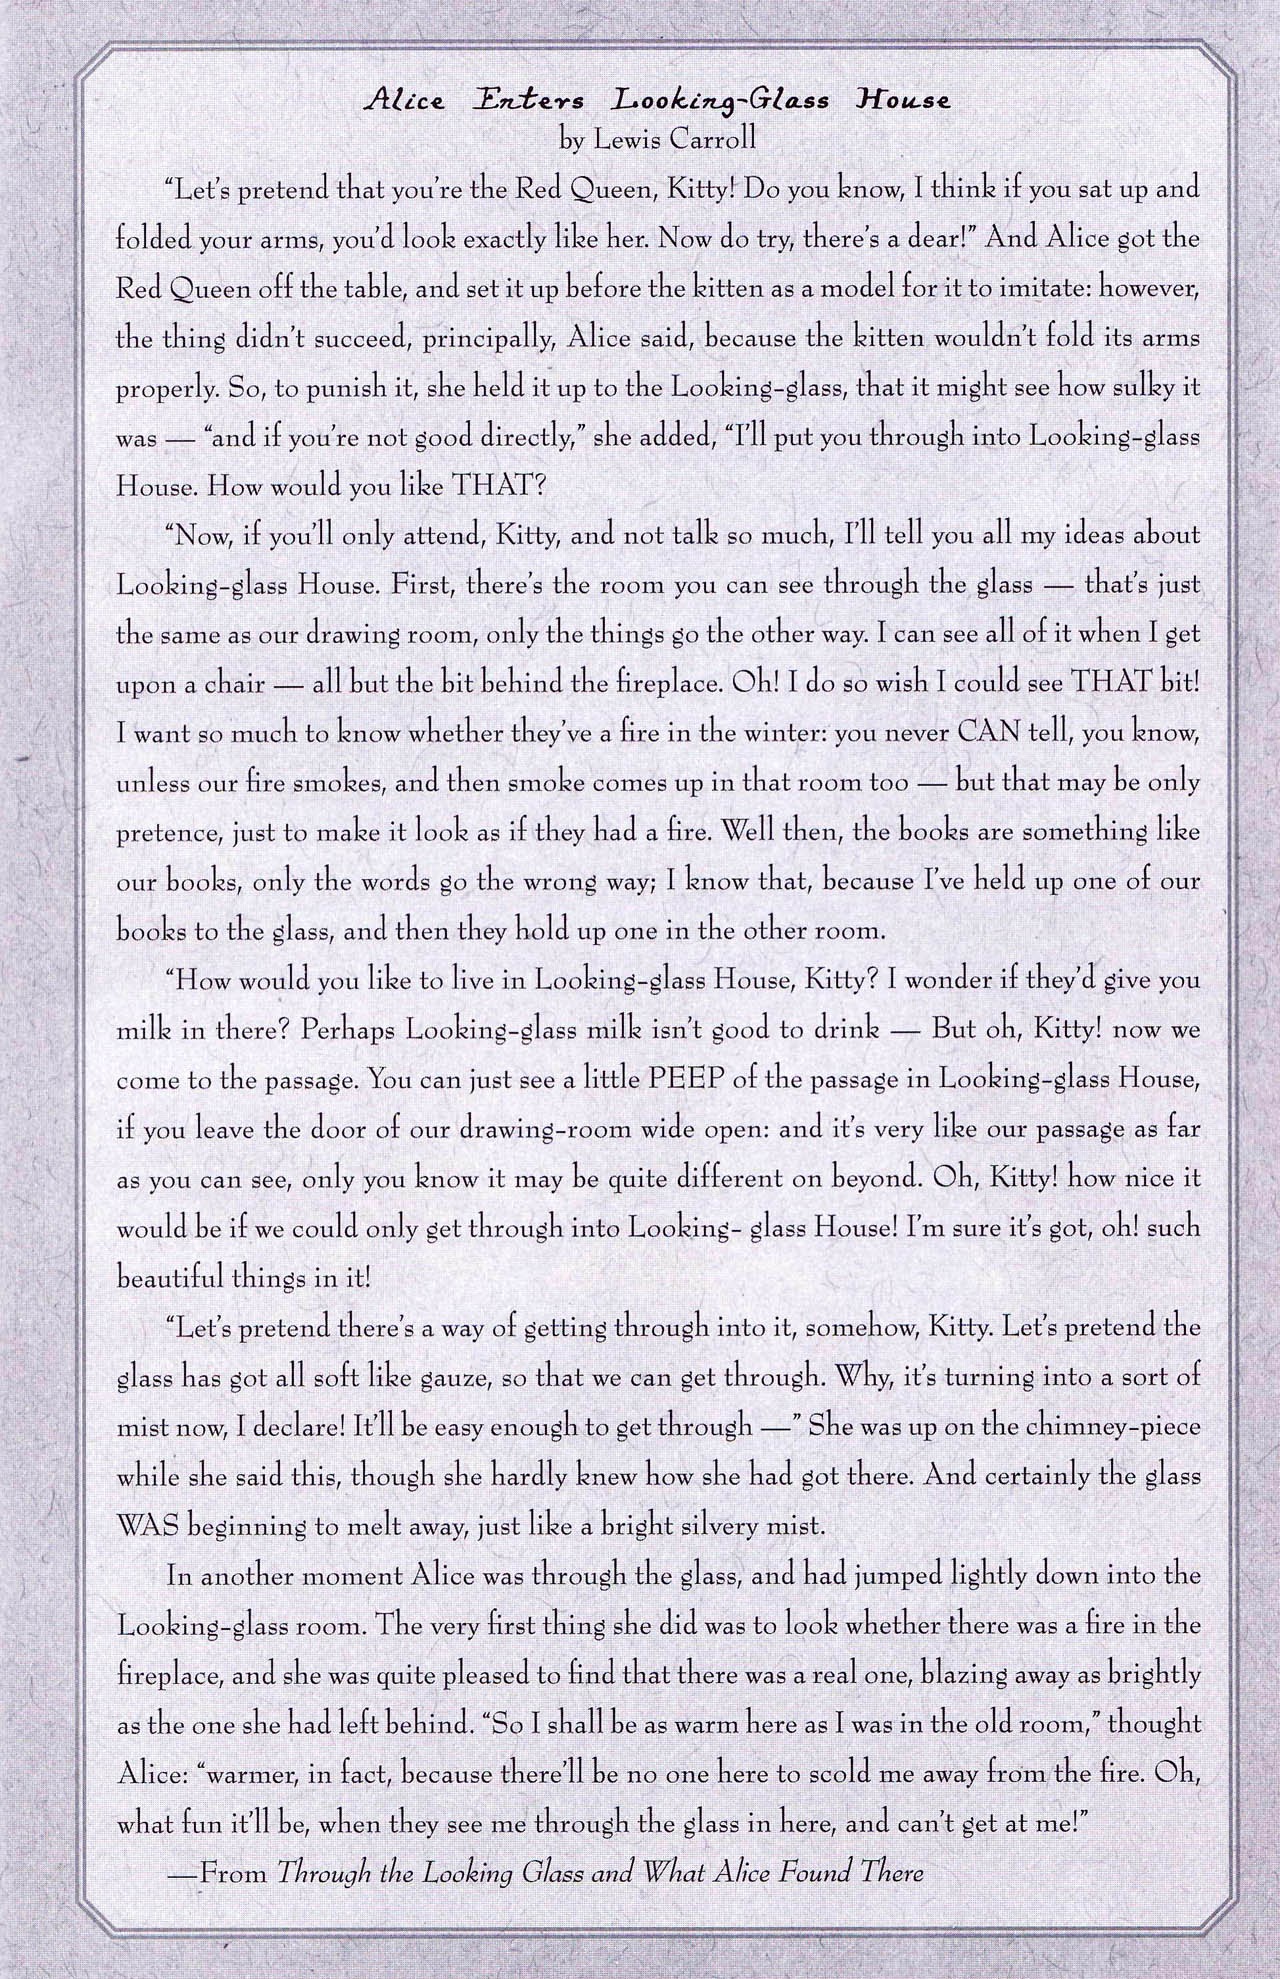 Alice Enters Looking-Glass House
by Lewis Carroll
“Let’s pretend that you’re the Red Queen, Kitty! Do you know, I think if you sat up and
folded your arms, you’d look exactly like her. Now do try, there’s a dear!” And Alice got the
Red Queen off the table, and set it up before the kitten as a model for it to imitate: however,
the thing didn’t succeed, principally, Alice said, because the kitten wouldn’t fold its arms
properly. So, to punish it, she held it up to the Looking-glass, that it might see how sulky it
was — “and if you’re not good directly,” she added, “I’ll put you through into Looking-glass
House. How would you like THAT?
“Now, if you’ll only attend, Kitty, and not talk so much, I’ll tell you all my ideas about
Looking-glass House. First, there’s the room you can see through the glass — that’s just
the same as our drawing room, only the things go the other way. I can see all of it when I get
upon a chair — all but the bit behind the fireplace. Oh! I do so wish I could see THAT bit!
I want so much to know whether they’ve a fire in the winter: you never CAN tell, you know,
unless our fire smokes, and then smoke comes up in that room too — but that may be only
pretence, just to make it look as if they had a fire. Well then, the books are something like
our books, only the words go the wrong way; I know that, because I’ve held up one of our
books to the glass, and then they hold up one in the other room.
“How would you like to live in Looking-glass House, Kitty? I wonder if they’d give you
milk in there? Perhaps Looking-glass milk isn’t good to drink — But oh, Kitty! now we
come to the passage. You can just see a little PEEP of the passage in Looking-glass House,
if you leave the door of our drawing-room wide open: and it’s very like our passage as far
as you can see, only you know it may be quite different on beyond. Oh, Kitty! how nice it
would be if we could only get through into Looking- glass House! I’m sure it’s got, oh! such
beautiful things in it!
“Let’s pretend there’s a way of getting through into it, somehow, Kitty. Let’s pretend the
glass has got all soft like gauze, so that we can get through. Why, it’s turning into a sort of
mist now, I declare! It’ll be easy enough to get through —” She was up on the chimney-piece
while she said this, though she hardly knew how she had got there. And certainly the glass
WAS beginning to melt away, just like a bright silvery mist.
In another moment Alice was through the glass, and had jumped lightly down into the
Looking-glass room. The very first thing she did was to look whether there was a fire in the
fireplace, and she was quite pleased to find that there was a real one, blazing away as brightly
as the one she had left behind. “So I shall be as warm here as I was in the old room,” thought
Alice: “warmer, in fact, because there’ll be no one here to scold me away from the fire. Oh,
what fun it’ll be, when they see me through the glass in here, and can’t get at me!”
—From Through the Looking Glass and What Alice Found There